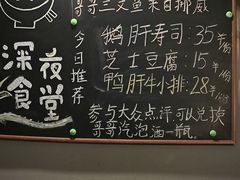 哥哥三文鱼来自挪威
深夜食堂
今日推荐
鹅肝寿司:35/
芝士豆腐:15/
鸭肝牛小排:28/
参与大众点评,可以兑换
哥哥汽泡酒一瓶。